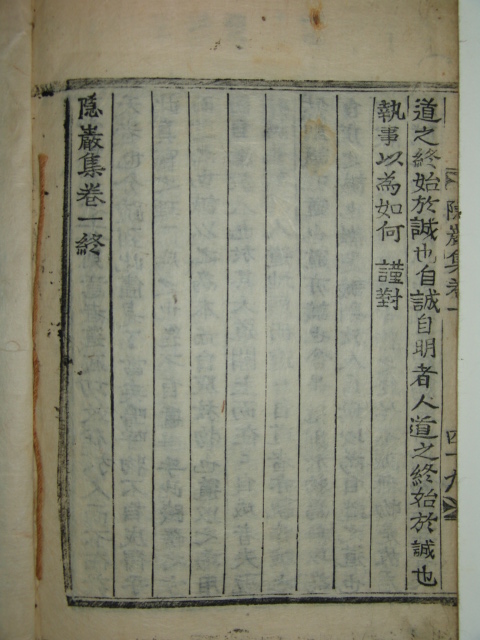 隱巖集卷一
四十九
道之終始於誠也自誠自明者人道之終始於誠也
執事以為如何 謹對
隱巖集卷一終